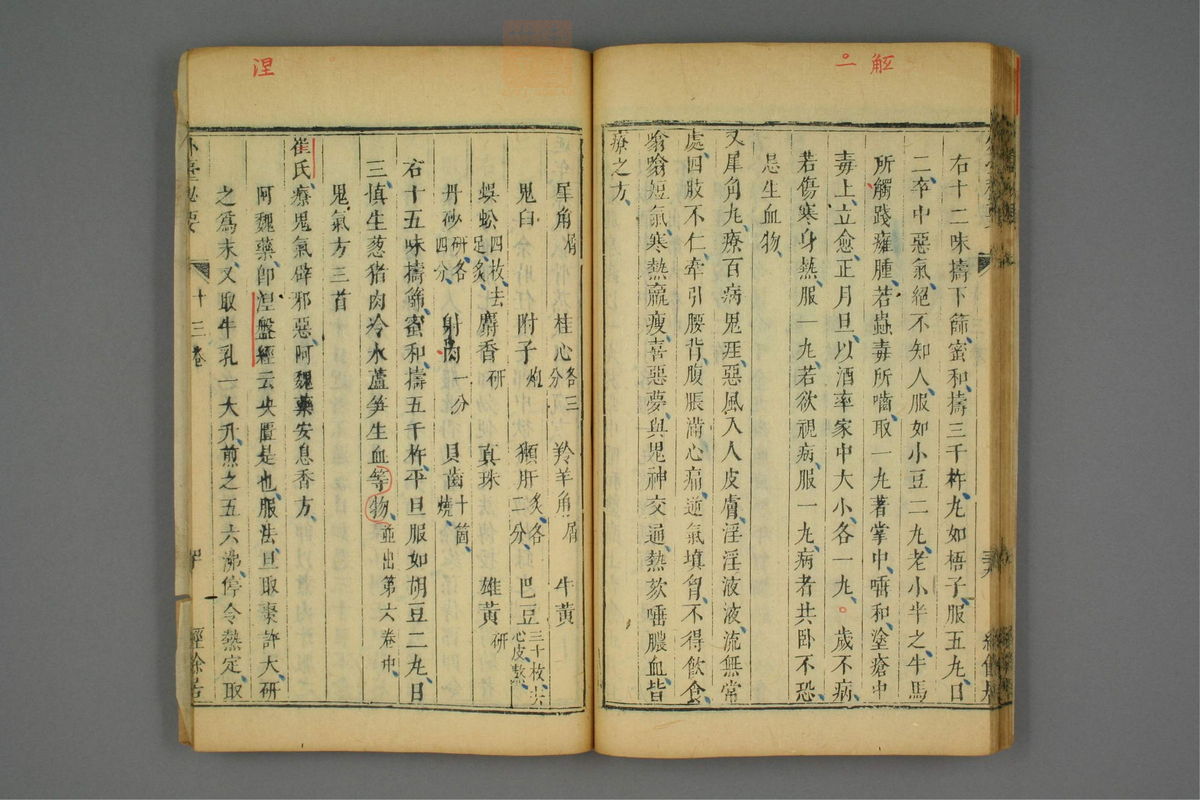 觝 一
右十二味擣下篩蜜和擣三千杵丸如梧子服五丸日
二卒中惡氣絕不知人服如小豆二丸老小半之牛馬
所觸踐癰腫若蟲毒所嚙取一丸著掌中唾和塗瘡中
毒上立愈正月旦以酒率家中大小各一丸歲不病
若傷寒身熱服一丸若欲視病服一丸病者共卧不恐
忌生血物
又犀角丸療百病鬼疰惡風入人皮膚淫淫液液流無常
處四肢不仁牽引腰背腹脹滿心痛逆氣填胷不得飲食
翕翕短氣寒熱羸瘦喜惡夢與鬼神交通熱欬唾膿血皆
療之方
涅
犀角屑 桂心各三分 羚羊角屑 牛黃
鬼臼 附子炮 獺肝炙各二分 巴豆三十枚去心皮熬
蜈蚣四枚去足炙 麝香研 真珠 雄黃研
丹砂研各四分 射罔一分 貝齒十箇燒
右十五味擣篩蜜和擣五千杵平旦服如胡豆二丸日
三慎生葱猪肉冷水蘆笋生血等物並出第六卷中
鬼氣方三首
崔氏療鬼氣辟邪惡阿魏藥安息香方
阿魏藥卽涅盤經云央匱是也服法旦取棗許大研
之爲末又取牛乳一大升煎之五六沸停令熱定取
外臺秘要 十三卷 經餘居